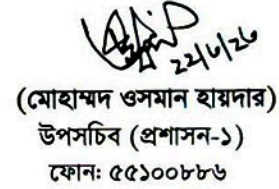 ২২/৬/২৬
(মোহাম্মদ ওসমান হায়দার)
উপসচিব (প্রশাসন-১)
ফোন: ৫৫১০০৮৮৬